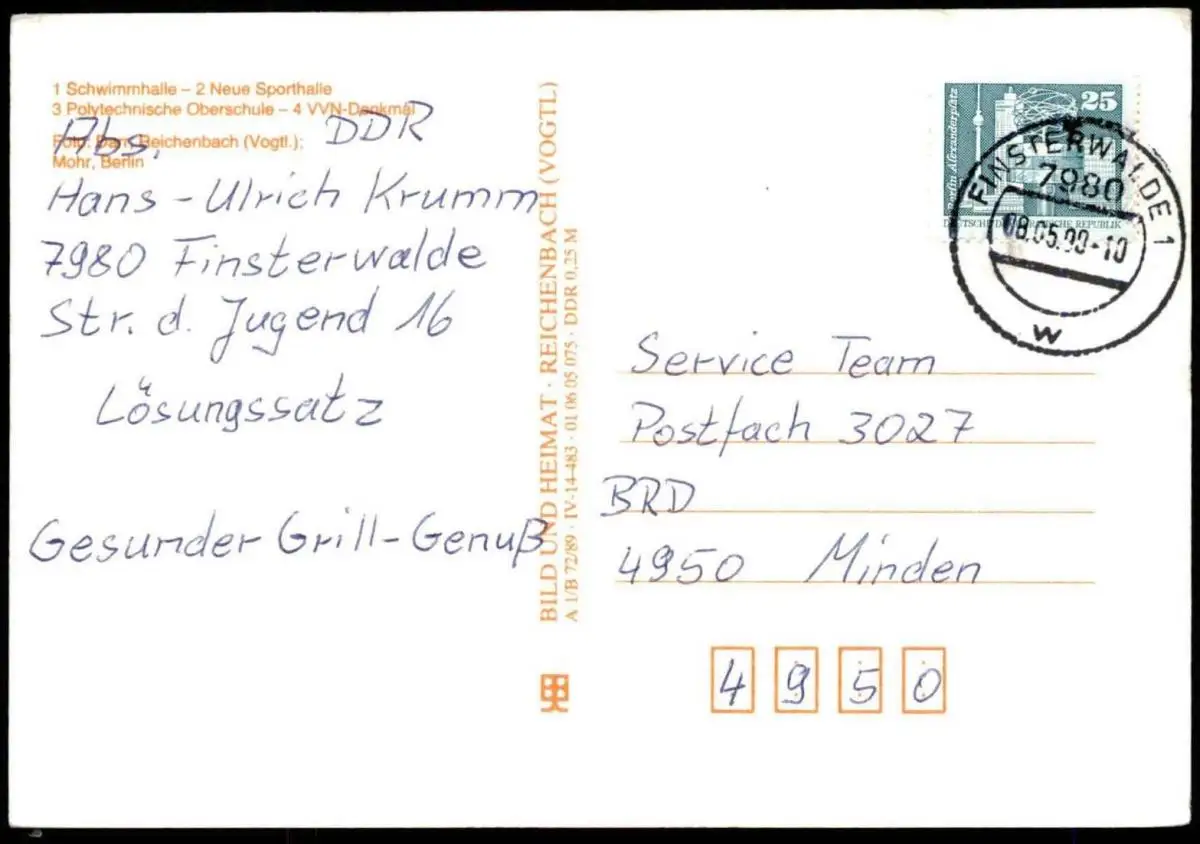 1 Schwimmhalle – 2 Neue Sporthalle
3 Polytechnische Oberschule – 4 VVN-Denkmal
Foto: Reichenbach (Vogtl.);
Mohr, Berlin
Abs. DDR
Hans-Ulrich Krumm
7980 Finsterwalde
Str. d. Jugend 16
Lösungssatz
Gesunder Grill-Genuß
BILD UND HEIMAT · REICHENBACH (VOGTL)
A 1/B 72/89 · IV-14-483 · 01 06 05 075 · DDR 0,25 M
25
Berlin Alexanderplatz
DEUTSCHE DEMOKRATISCHE REPUBLIK
FINSTERWALDE 1
7980
08.05.90-10
w
Service Team
Postfach 3027
BRD
4950 Minden
4 9 5 0